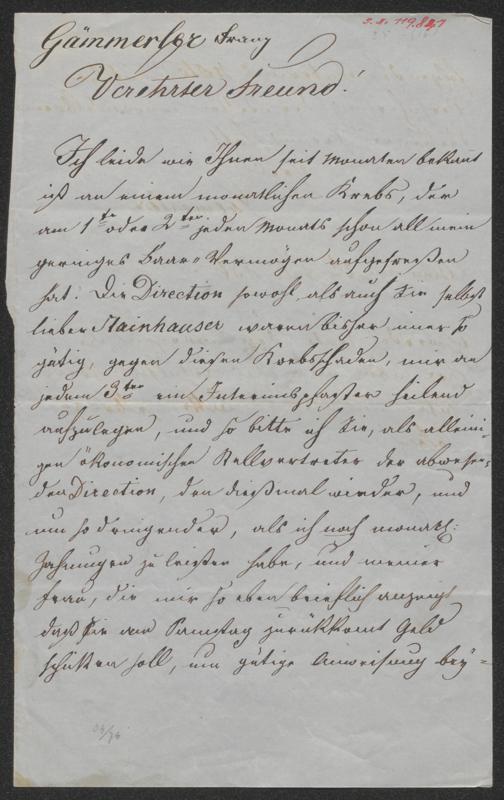 Gämmerler Franz
Verehrter Freund!
Ich leide wie Ihnen seit Monaten bekannt
ist an einem monatlichen Krebs, der
am 1ten oder 2ten jeden Monats schon all mein
geringes Baar-Vermögen aufgefressen
hat. Die Direction sowohl, als auch Sie selbst
lieber Stainhauser waren bisher imer so
gütig, gegen diesen Krebsschaden, mir an
jedem 3ten ein Interimspflaster heilend
aufzulegen, und so bitte ich Sie, als alleini-
gen ökonomischen Stellvertreter der abwesen-
den Direction, den dießmal wieder, und
um so dringender, als ich noch monatl:
Zahlungen zu leisten habe, und meiner
Frau, die mir so eben brieflich anzeigt
daß Sie am Samstag zurükkomt Geld
schiken soll, um gütige Anweisung bey-